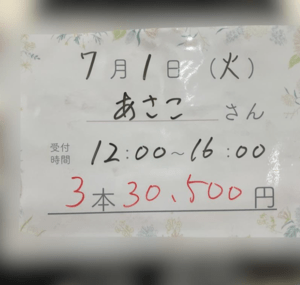 7月1日(火)
あさこさん
受付時間 12:00~16:00
3本30,500円